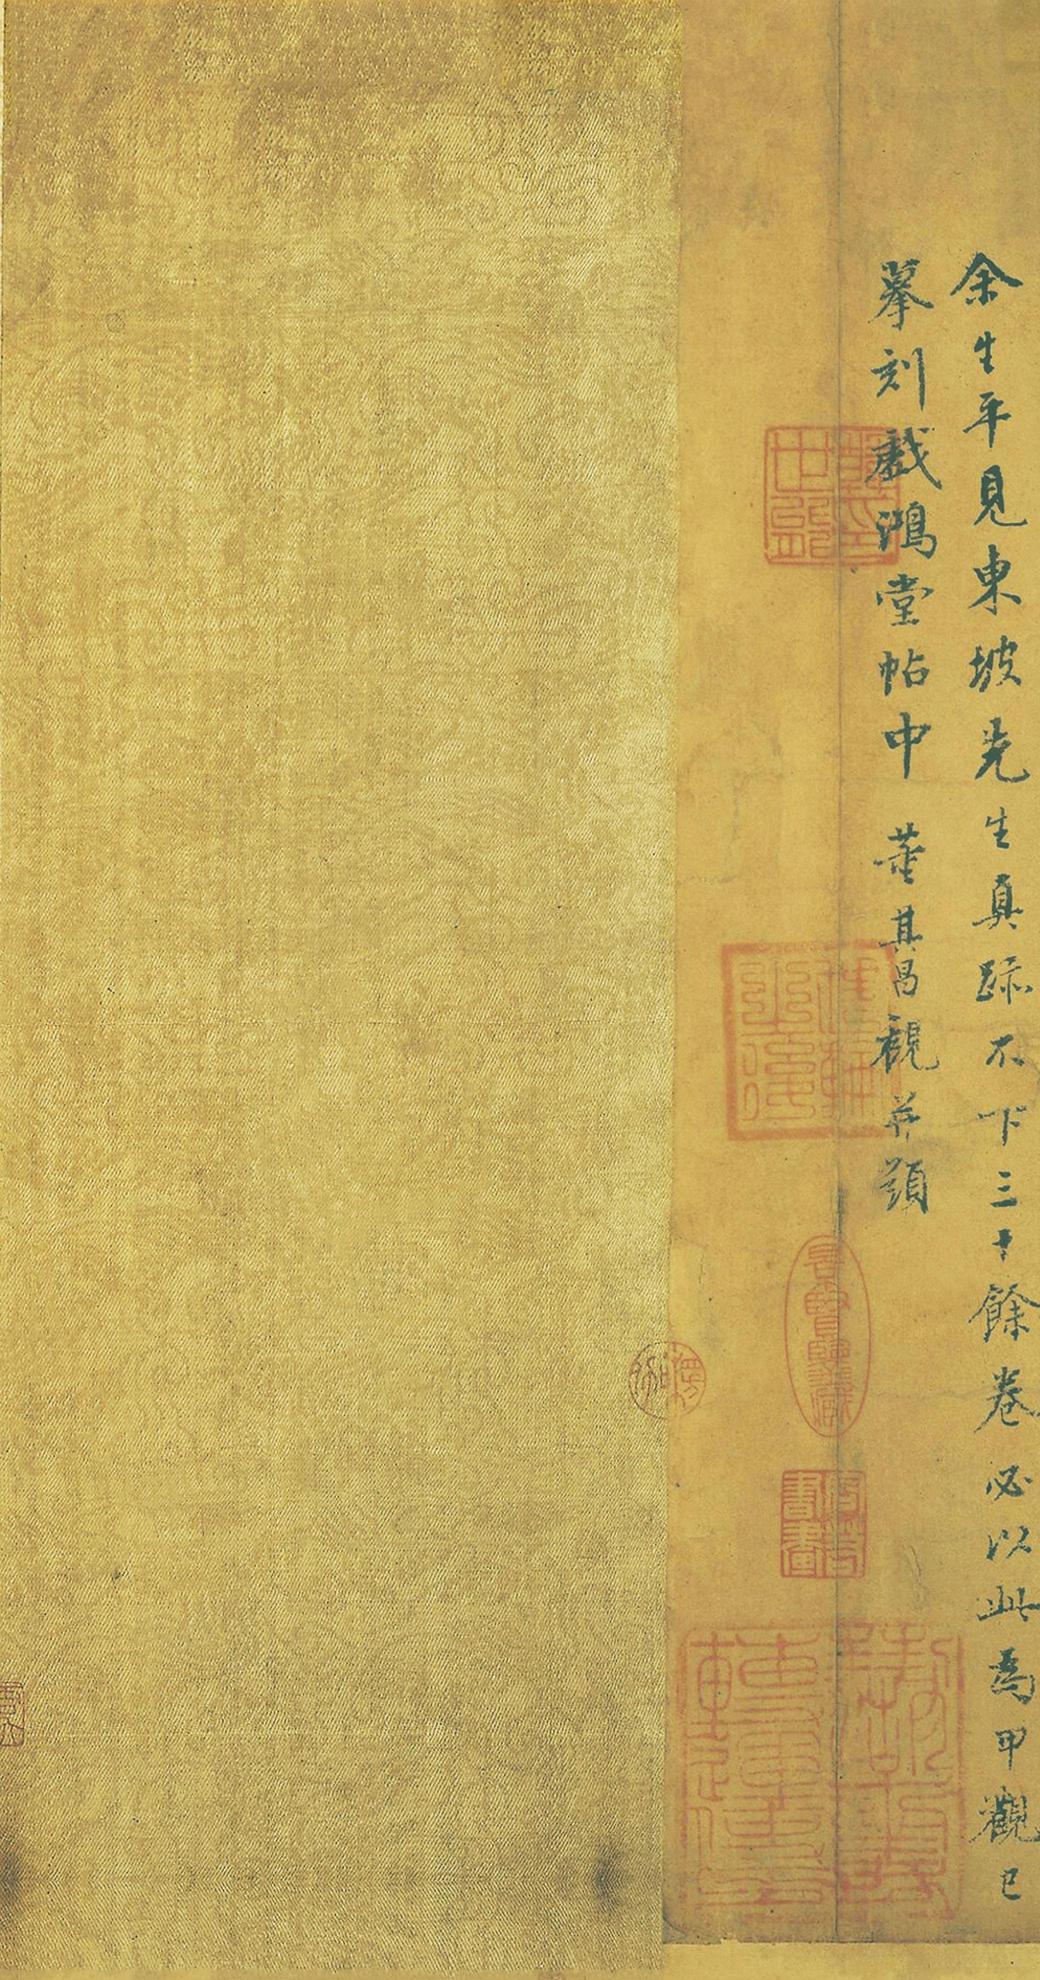 余生平見東坡先生真跡不下三十餘卷必以此為甲觀已
摹刻戲鴻堂帖中 董其昌觀并題